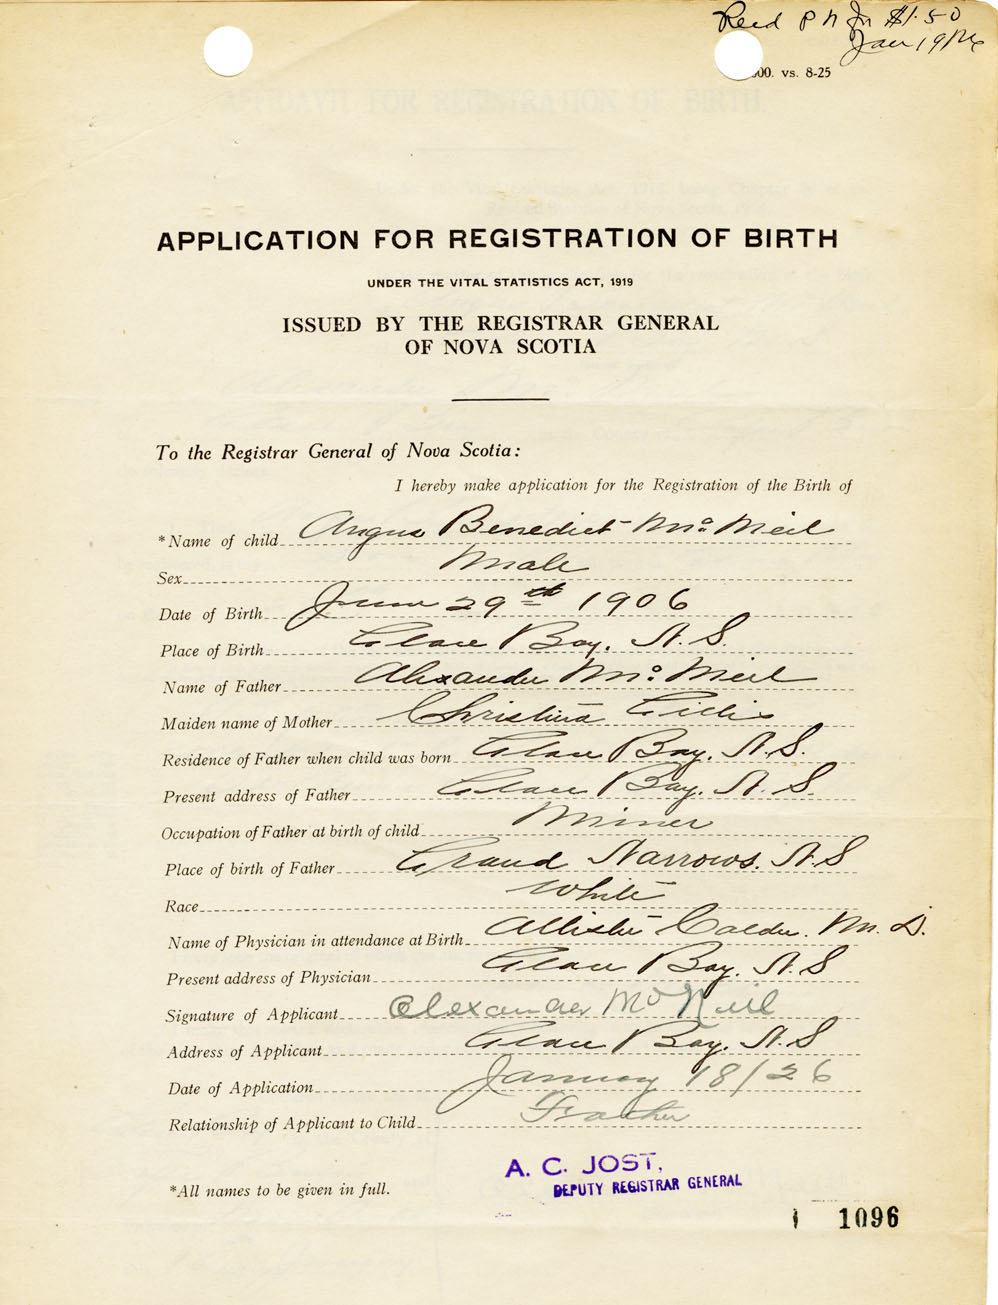 Recd P N Jn $1.50
Jan 19/26
000. vs. 8-25
APPLICATION FOR REGISTRATION OF BIRTH
UNDER THE VITAL STATISTICS ACT, 1919
ISSUED BY THE REGISTRAR GENERAL
OF NOVA SCOTIA
To the Registrar General of Nova Scotia:
I hereby make application for the Registration of the Birth of
*Name of child Angus Benedict Mc Neil
Sex Male
Date of Birth June 29th 1906
Place of Birth Glace Bay, N.S.
Name of Father Alexander Mc Neil
Maiden name of Mother Christina Gillis
Residence of Father when child was born Glace Bay, N.S.
Present address of Father Glace Bay, N.S.
Occupation of Father at birth of child Miner
Place of birth of Father Grand Narrows, N.S
Race White
Name of Physician in attendance at Birth Allister Calder. M.D.
Present address of Physician Glace Bay, N.S
Signature of Applicant Alexander Mc Neil
Address of Applicant Glace Bay, N.S
Date of Application January 18/26
Relationship of Applicant to Child Father
*All names to be given in full.
A. C. JOST,
DEPUTY REGISTRAR GENERAL
1096